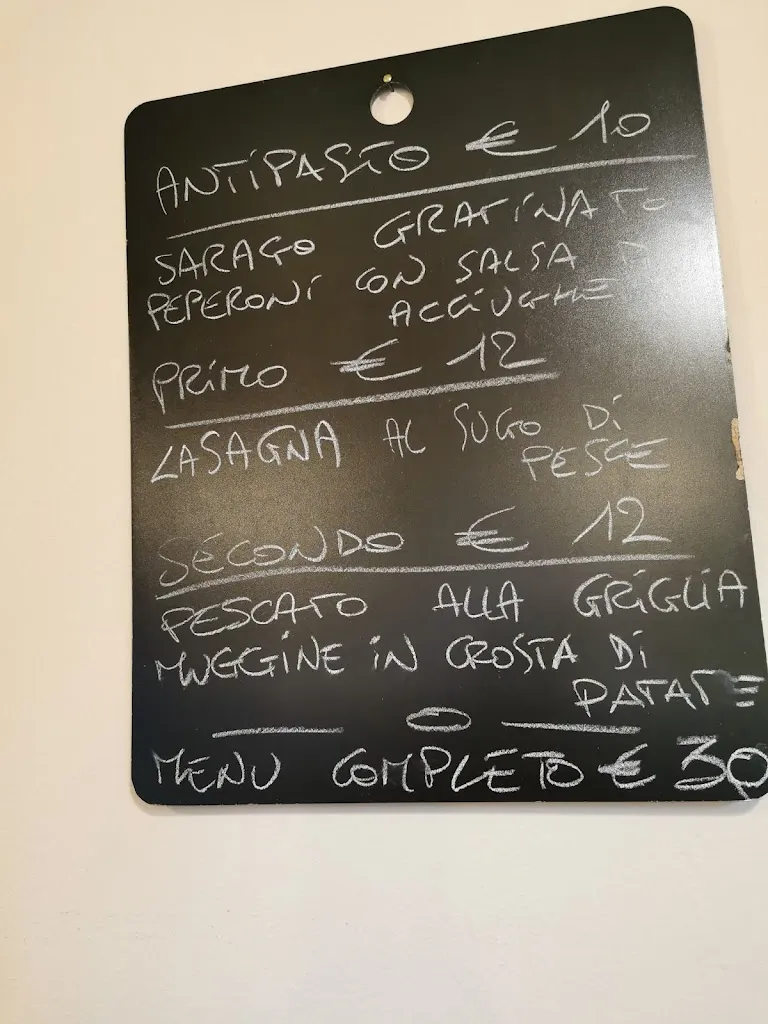 ANTIPASTO € 10
SARAGO GRATINATO
PEPERONI CON SALSA DI
ACCIUGHE
PRIMO € 12
LASAGNA AL SUGO DI
PESCE
SECONDO € 12
PESCATO ALLA GRIGLIA
MUGGINE IN CROSTA DI
PATATE
MENU COMPLETO € 30